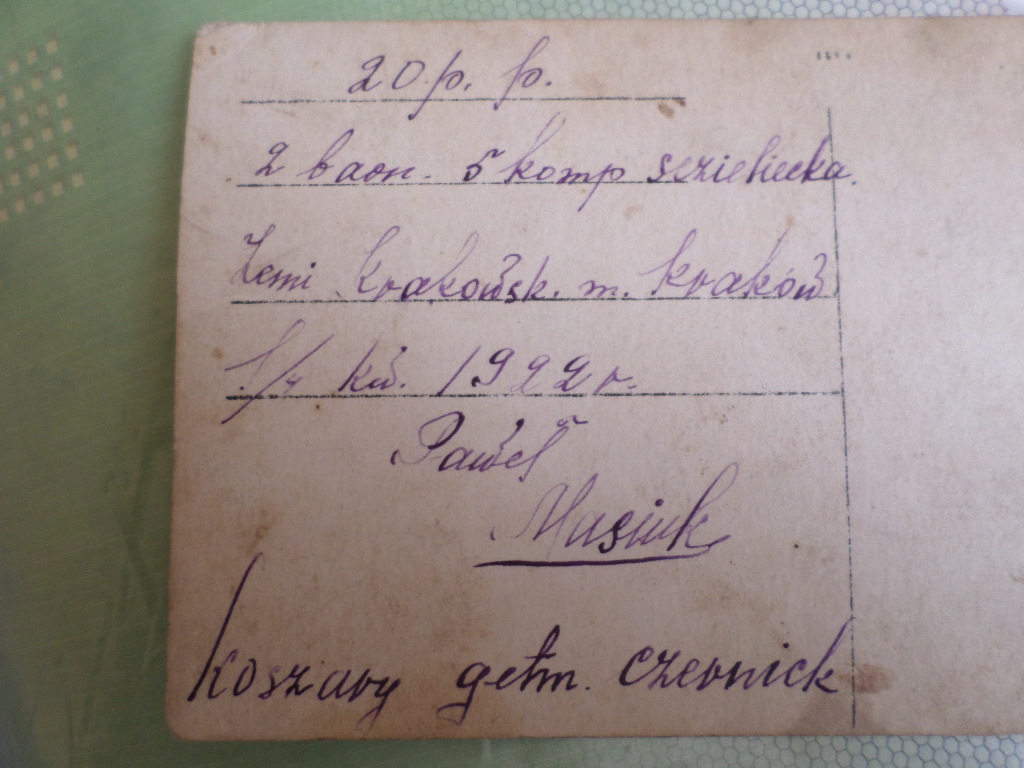 20 p. p.
2 baon. 5 komp sczieliecka.
Zemi Krakowsk. m. Kraków
kw. 1922 r.
Paweł
Masiuk
Koszary getm. Czernick